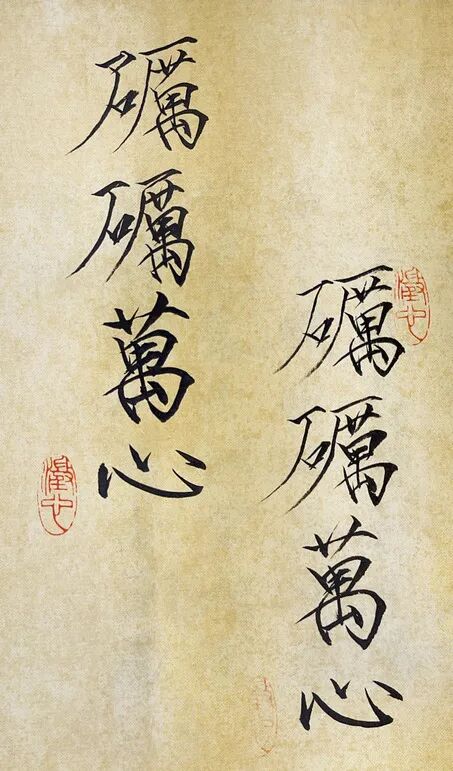 礪礪萬心
礪礪萬心